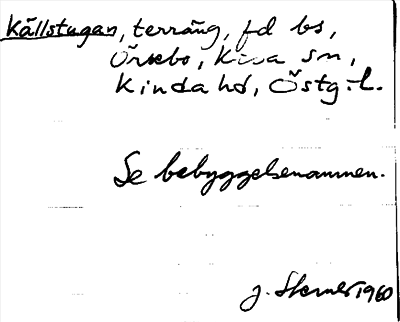 Källstugan, terräng, fd bs,
Örsebo, Kisa sn,
Kinda hd, Östg. l.
Se bebyggelsenamnen.
J. Sterner 1960